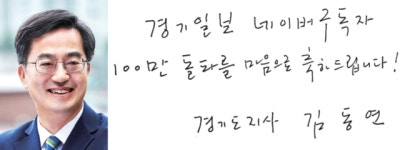 경기일보 네이버구독자
100만 돌파를 마음으로 축하드립니다!
경기도지사 김동연